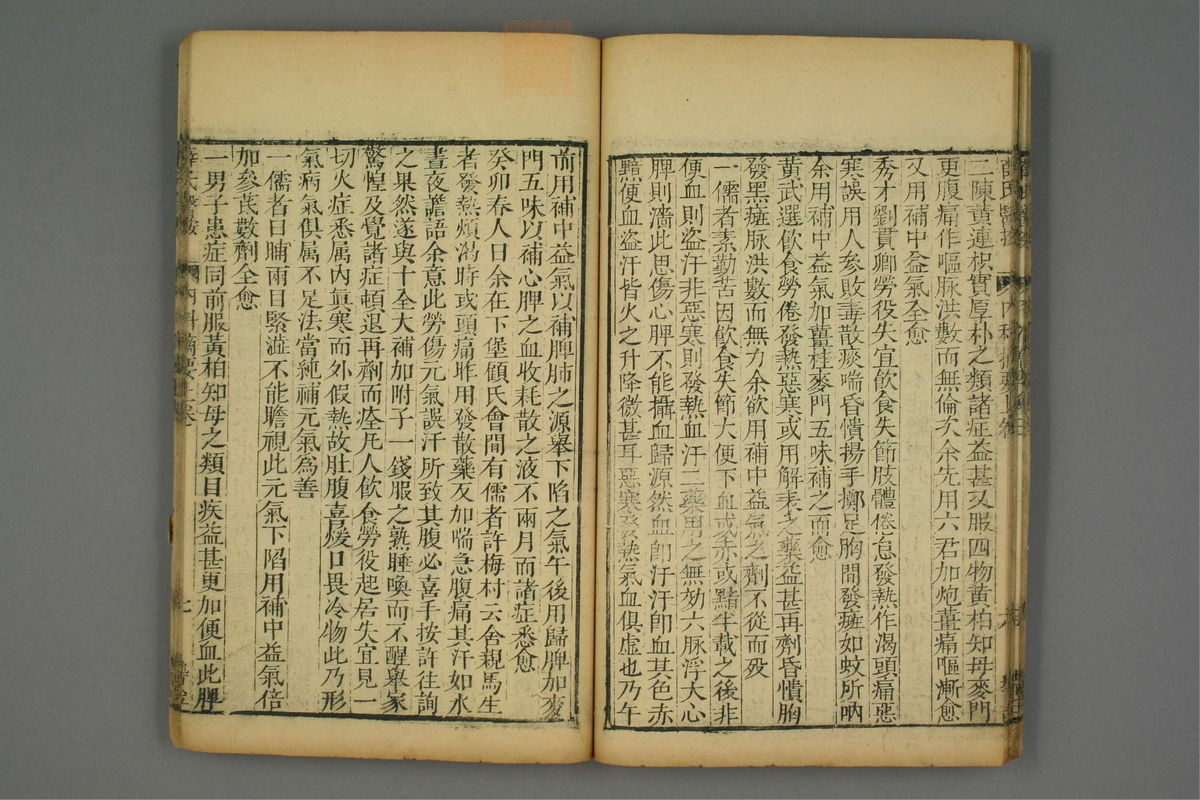 二陳黃連枳實厚朴之類諸症益甚又服四物黃柏知母麥門
更腹痛作嘔脉洪數而無倫次余先用六君加炮薑痛嘔漸愈
又用補中益氣全愈
秀才劉貫卿勞役失宜飲食失節肢體倦怠發熱作渴頭痛惡
寒誤用人參敗毒散痰喘昏憒揚手擲足胸間發癍如蚊所吶
余用補中益氣加薑桂麥門五味補之而愈
黃武選飲食勞倦發熱惡寒或用解表之藥益甚再劑昏憒胸
發黑癍脉洪數而無力余欲用補中益氣之劑不從而歿
一儒者素勤苦因飲食失節大便下血或赤或黯半載之後非
便血則盜汗非惡寒則發熱血汗二藥用之無効六脉浮大心
脾則濇此思傷心脾不能攝血歸源然血即汗汗即血其色赤
黯便血盜汗皆火之升降微甚耳惡寒發熱氣血俱虛也乃午
前用補中益氣以補脾肺之源舉下陷之氣午後用歸脾加麥
門五味以補心脾之血收耗散之液不兩月而諸症悉愈
癸卯春人日余在下堡顧氏會間有儒者許梅村云舍親馬生
者發熱煩渴時或頭痛昨用發散藥反加喘急腹痛其汗如水
晝夜譫語余意此勞傷元氣誤汗所致其腹必喜手按許往詢
之果然遂與十全大補加附子一錢服之熟睡喚而不醒舉家
驚惶及覺諸症頓退再劑而痊凡人飲食勞役起居失宜見一
切火症悉属內眞寒而外假熱故肚腹喜煖口畏冷物此乃形
氣病氣俱属不足法當純補元氣為善
一儒者日晡兩目緊澁不能瞻視此元氣下陷用補中益氣倍
加參芪數劑全愈
一男子患症同前服黃柏知母之類目疾益甚更加便血此脾
薛氏醫按 內科摘要上卷 七